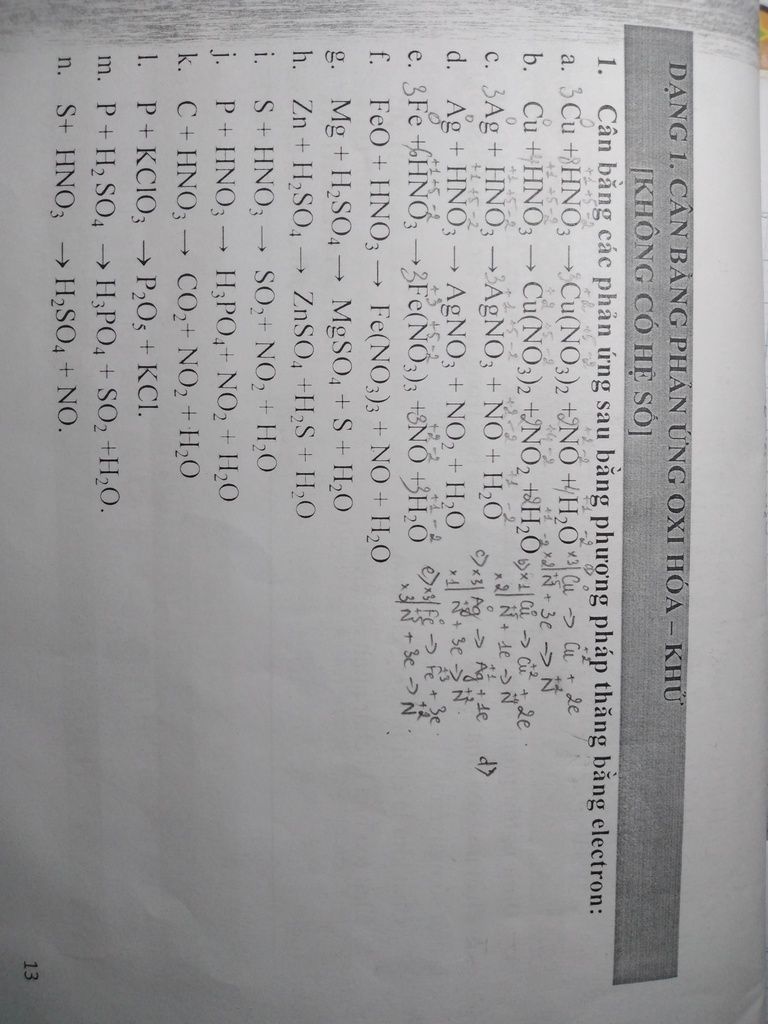 DẠNG 1. CÂN BẰNG PHẢN ỨNG OXI HÓA – KHỬ
[KHÔNG CÓ HỆ SỐ]
1. Cân bằng các phản ứng sau bằng phương pháp thăng bằng electron:
a. 3Cu + 8HNO₃ → 3Cu(NO₃)₂ + 2NO + 4H₂O
b. Cu + 4HNO₃ → Cu(NO₃)₂ + 2NO₂ + 2H₂O
c. 3Ag + HNO₃ → 3AgNO₃ + NO + H₂O
d. Ag + HNO₃ → AgNO₃ + NO₂ + H₂O
e. 3Fe + HNO₃ → 3Fe(NO₃)₃ + 3NO + 3H₂O
f. FeO + HNO₃ → Fe(NO₃)₃ + NO + H₂O
g. Mg + H₂SO₄ → MgSO₄ + S + H₂O
h. Zn + H₂SO₄ → ZnSO₄ +H₂S + H₂O
i. S + HNO₃ → SO₂+ NO₂ + H₂O
j. P + HNO₃ → H₃PO₄+ NO₂ + H₂O
k. C + HNO₃ → CO₂+ NO₂ + H₂O
l. P + KClO₃ → P₂O₅ + KCl.
m. P + H₂SO₄ → H₃PO₄ + SO₂ +H₂O.
n. S+ HNO₃ → H₂SO₄ + NO.
x3| Cu → Cu + 2e
x2| N + 3e → N
b) x1| Cu → Cu + 2e
x2| N + 1e → N
c) x3| Ag → Ag + 1e
x1| N + 3e → N
d)
e) x3| Fe → Fe + 3e
x3| N + 3e → N
13